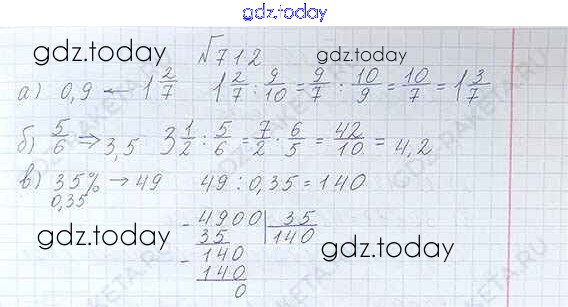 gdz.today
gdz.today √712 gdz.today
а) 0,9 ← 1 2/7 1 2/7 : 9/10 = 9/7 : 10/9 = 10/7 = 1 3/7
б) 5/6 ⇒ 3,5 3 1/2 : 5/6 = 7/2 · 6/5 = 42/10 = 4,2
в) 35% → 49 49 : 0,35 = 140
0,35
- 4900 | 35
35 140
- 140
140
0
gdz.today gdz.today